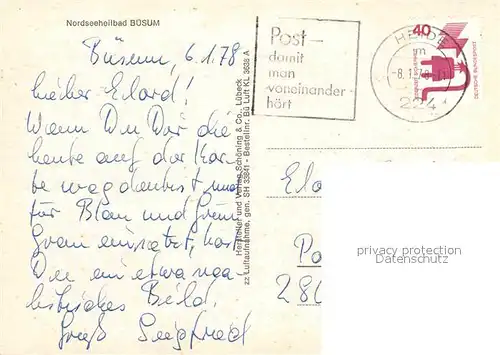 Nordseeheilbad BÜSUM
Büsum, 6.1.78
Lieber Elard!
Wenn Du Dir die
heute auf der Kar-
te wegdenkst, und
für Blau und Grün
Grau einsetzt, hast
Du ein etwa rea-
listisches Bild.
Gruß Siegfried
Hersteller und Verlag Schöning & Co., Lübeck
zz Luftaufnahme, gen. SH 33641 - Bestellnr. Bü Luft KL 3638 A
Post –
damit
man
voneinander
hört
HEIDE
-8.1.78
224
40
DEUTSCHE BUNDESPOST
Ela
Po
280
privacy protection
Datenschutz